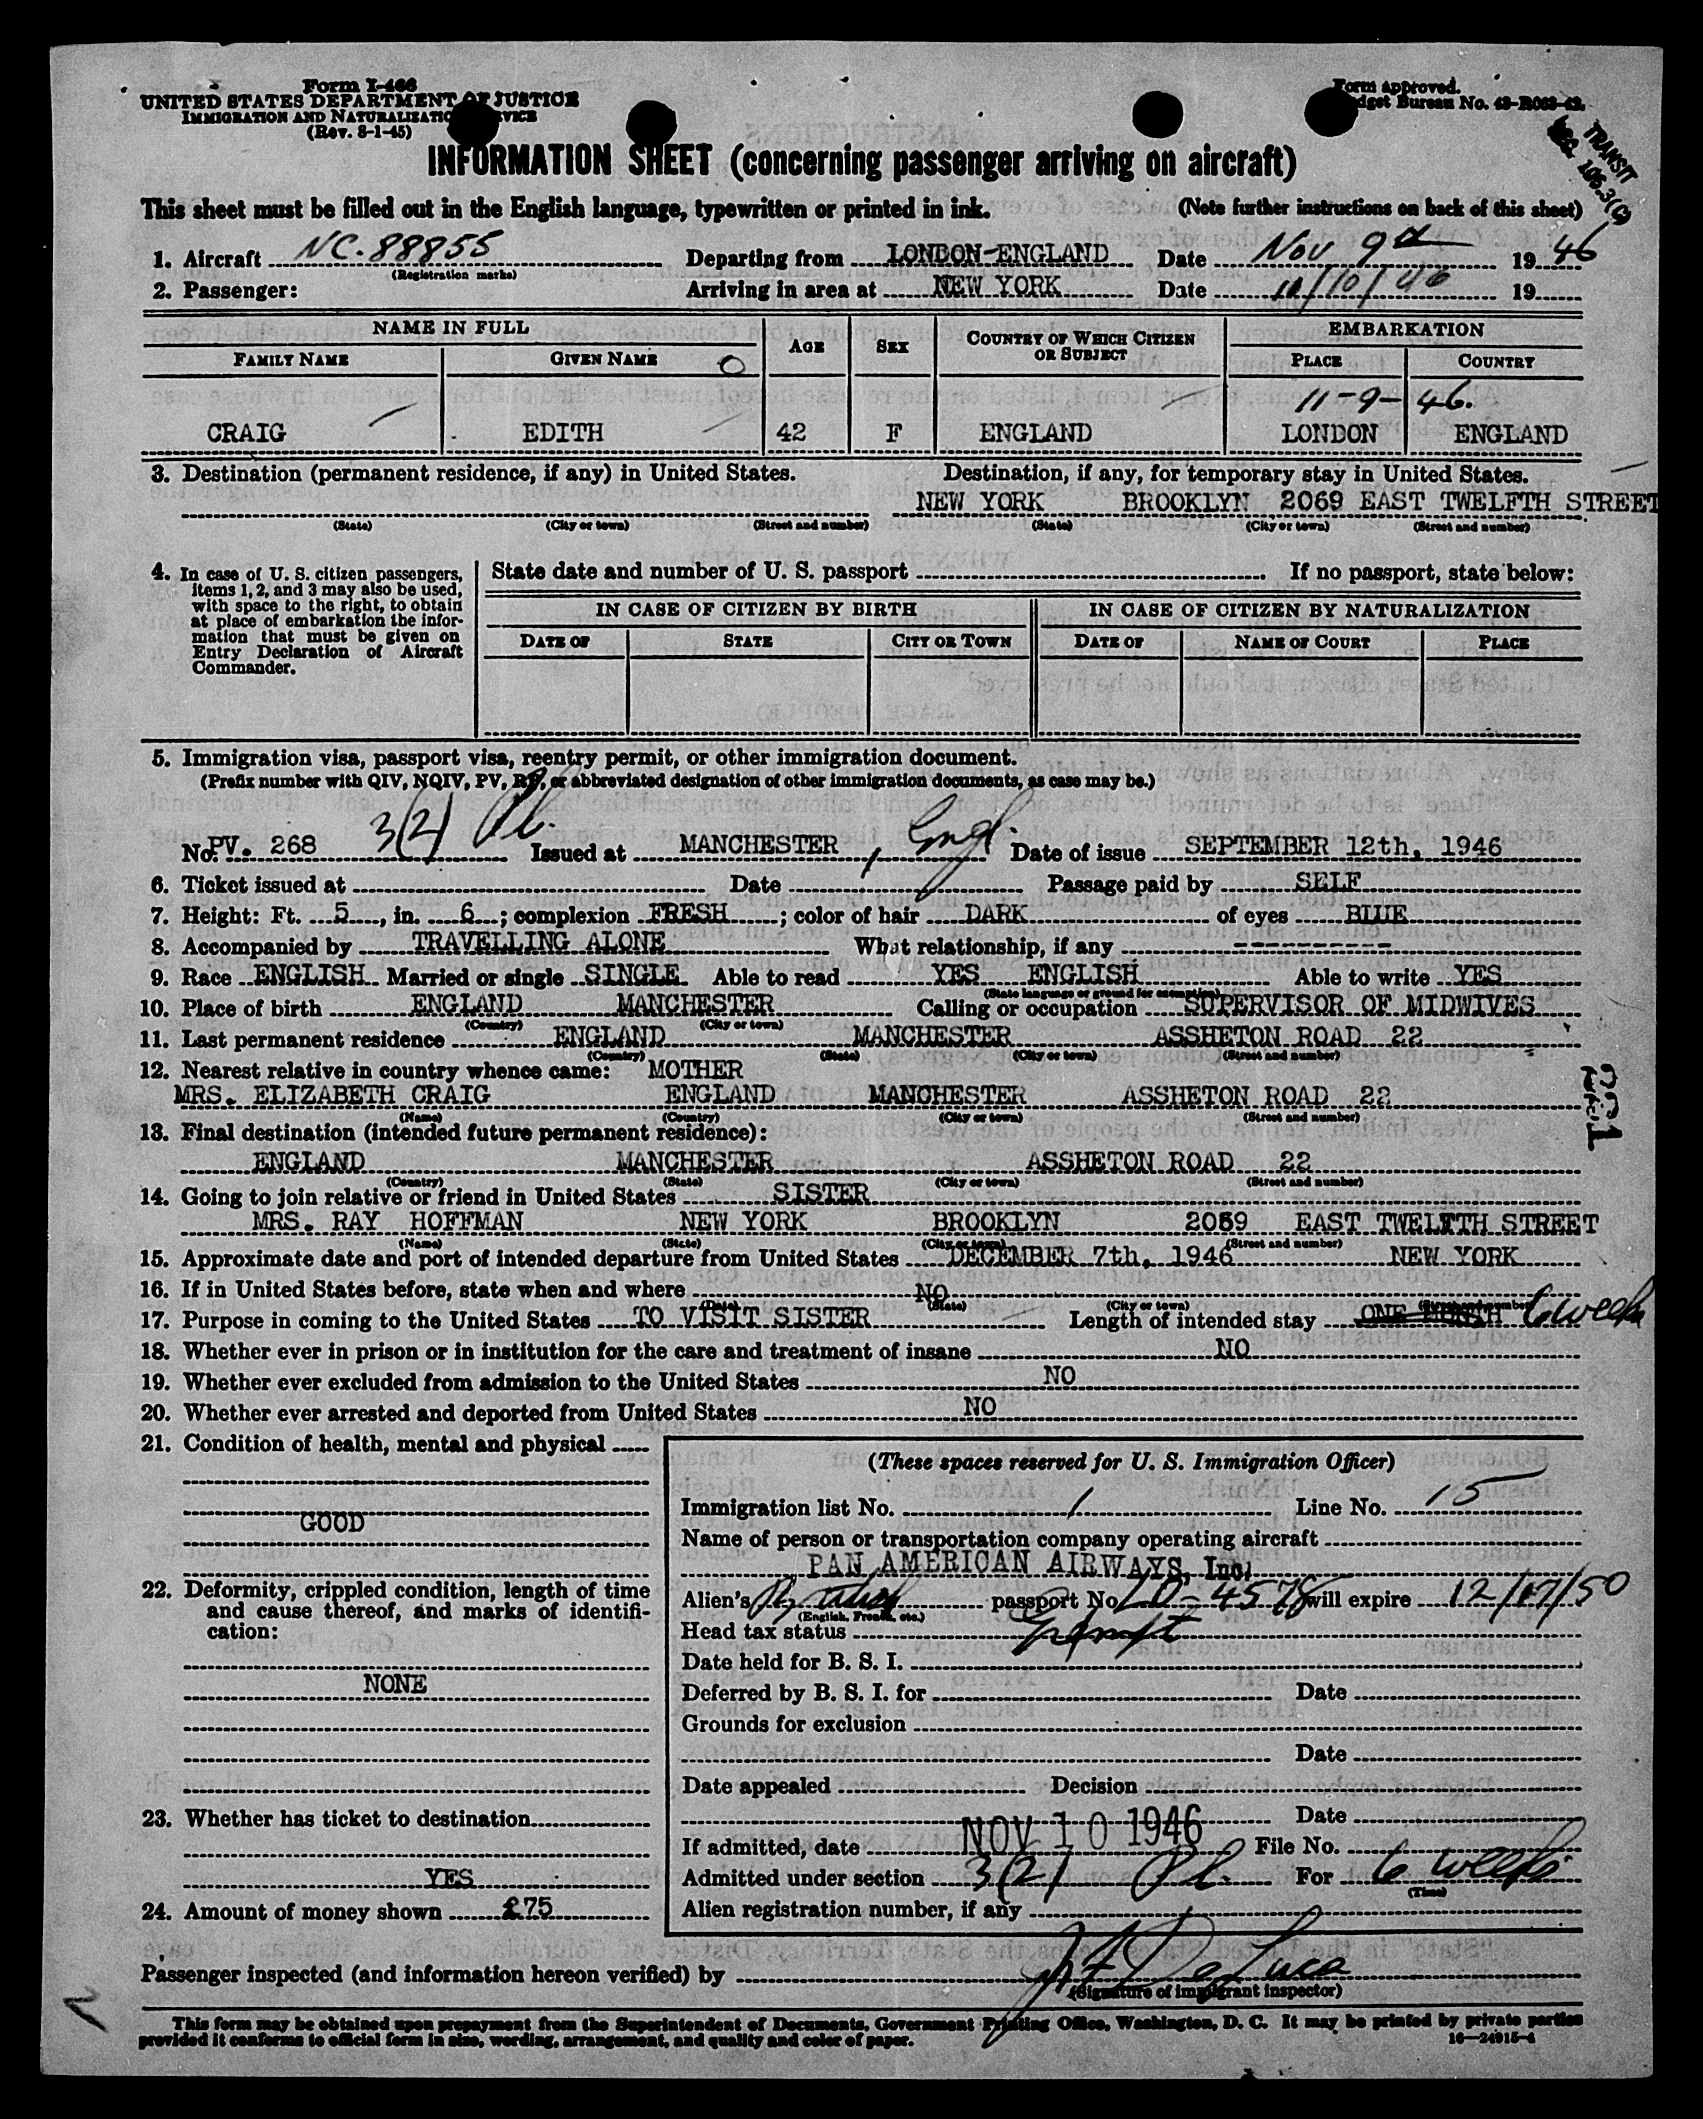 Form I-466
UNITED STATES DEPARTMENT OF JUSTICE
IMMIGRATION AND NATURALIZATION SERVICE
(Rev. 8-1-45)
Form approved.
Budget Bureau No. 43-R063-42.
TRANSIT
SEC. 106.3(C)
INFORMATION SHEET (concerning passenger arriving on aircraft)
This sheet must be filled out in the English language, typewritten or printed in ink. (Note further instructions on back of this sheet)
1. Aircraft NC. 88855 Departing from LONDON-ENGLAND Date Nov 9th 1946
(Registration marks)
2. Passenger: Arriving in area at NEW YORK Date 11/10/46 19
NAME IN FULL AGE SEX COUNTRY OF WHICH CITIZEN OR SUBJECT EMBARKATION
FAMILY NAME GIVEN NAME PLACE COUNTRY
11-9-46.
CRAIG EDITH 42 F ENGLAND LONDON ENGLAND
3. Destination (permanent residence, if any) in United States. Destination, if any, for temporary stay in United States.
NEW YORK BROOKLYN 2069 EAST TWELFTH STREET
(State) (City or town) (Street and number) (State) (City or town) (Street and number)
4. In case of U. S. citizen passengers, items 1, 2, and 3 may also be used, with space to the right, to obtain at place of embarkation the information that must be given on Entry Declaration of Aircraft Commander.
State date and number of U. S. passport If no passport, state below:
IN CASE OF CITIZEN BY BIRTH IN CASE OF CITIZEN BY NATURALIZATION
DATE OF STATE CITY OR TOWN DATE OF NAME OF COURT PLACE
5. Immigration visa, passport visa, reentry permit, or other immigration document.
(Prefix number with QIV, NQIV, PV, RP, or abbreviated designation of other immigration documents, as case may be.)
No. PV. 268 3(2) Pl. Issued at MANCHESTER, Engl. Date of issue SEPTEMBER 12th, 1946
6. Ticket issued at Date Passage paid by SELF
7. Height: Ft. 5, in. 6; complexion FRESH; color of hair DARK of eyes BLUE
8. Accompanied by TRAVELLING ALONE What relationship, if any ----------
9. Race ENGLISH Married or single SINGLE Able to read YES ENGLISH Able to write YES
(State language or ground for exemption)
10. Place of birth ENGLAND MANCHESTER Calling or occupation SUPERVISOR OF MIDWIVES
(Country) (City or town)
11. Last permanent residence ENGLAND MANCHESTER ASSHETON ROAD 22
(Country) (State) (City or town) (Street and number)
12. Nearest relative in country whence came: MOTHER
MRS. ELIZABETH CRAIG ENGLAND MANCHESTER ASSHETON ROAD 22
(Name) (Country) (City or town) (Street and number)
13. Final destination (intended future permanent residence):
ENGLAND MANCHESTER ASSHETON ROAD 22
(Country) (State) (City or town) (Street and number)
14. Going to join relative or friend in United States SISTER
MRS. RAY HOFFMAN NEW YORK BROOKLYN 2069 EAST TWELFTH STREET
(Name) (State) (City or town) (Street and number)
15. Approximate date and port of intended departure from United States DECEMBER 7th, 1946 NEW YORK
16. If in United States before, state when and where NO
(Date) (State) (City or town) (Street and number)
17. Purpose in coming to the United States TO VISIT SISTER Length of intended stay ONE MONTH 6 weeks
18. Whether ever in prison or in institution for the care and treatment of insane NO
19. Whether ever excluded from admission to the United States NO
20. Whether ever arrested and deported from United States NO
21. Condition of health, mental and physical
GOOD
22. Deformity, crippled condition, length of time and cause thereof, and marks of identification:
NONE
23. Whether has ticket to destination
YES
24. Amount of money shown £75
(These spaces reserved for U. S. Immigration Officer)
Immigration list No. 1 Line No. 15
Name of person or transportation company operating aircraft
PAN AMERICAN AIRWAYS, Inc.
Alien's British passport No. LO-4578 will expire 12/17/50
(English, French, etc.)
Head tax status Exempt
Date held for B. S. I.
Deferred by B. S. I. for Date
Grounds for exclusion
Date
Date appealed Decision
Date
If admitted, date NOV 10 1946 File No.
Admitted under section 3(2) Pl. For 6 weeks
(Time)
Alien registration number, if any
Passenger inspected (and information hereon verified) by De Luca
(Signature of immigrant inspector)
This form may be obtained upon prepayment from the Superintendent of Documents, Government Printing Office, Washington, D. C. It may be printed by private parties
provided it conforms to official form in size, wording, arrangement, and quality and color of paper. 16-24915-4